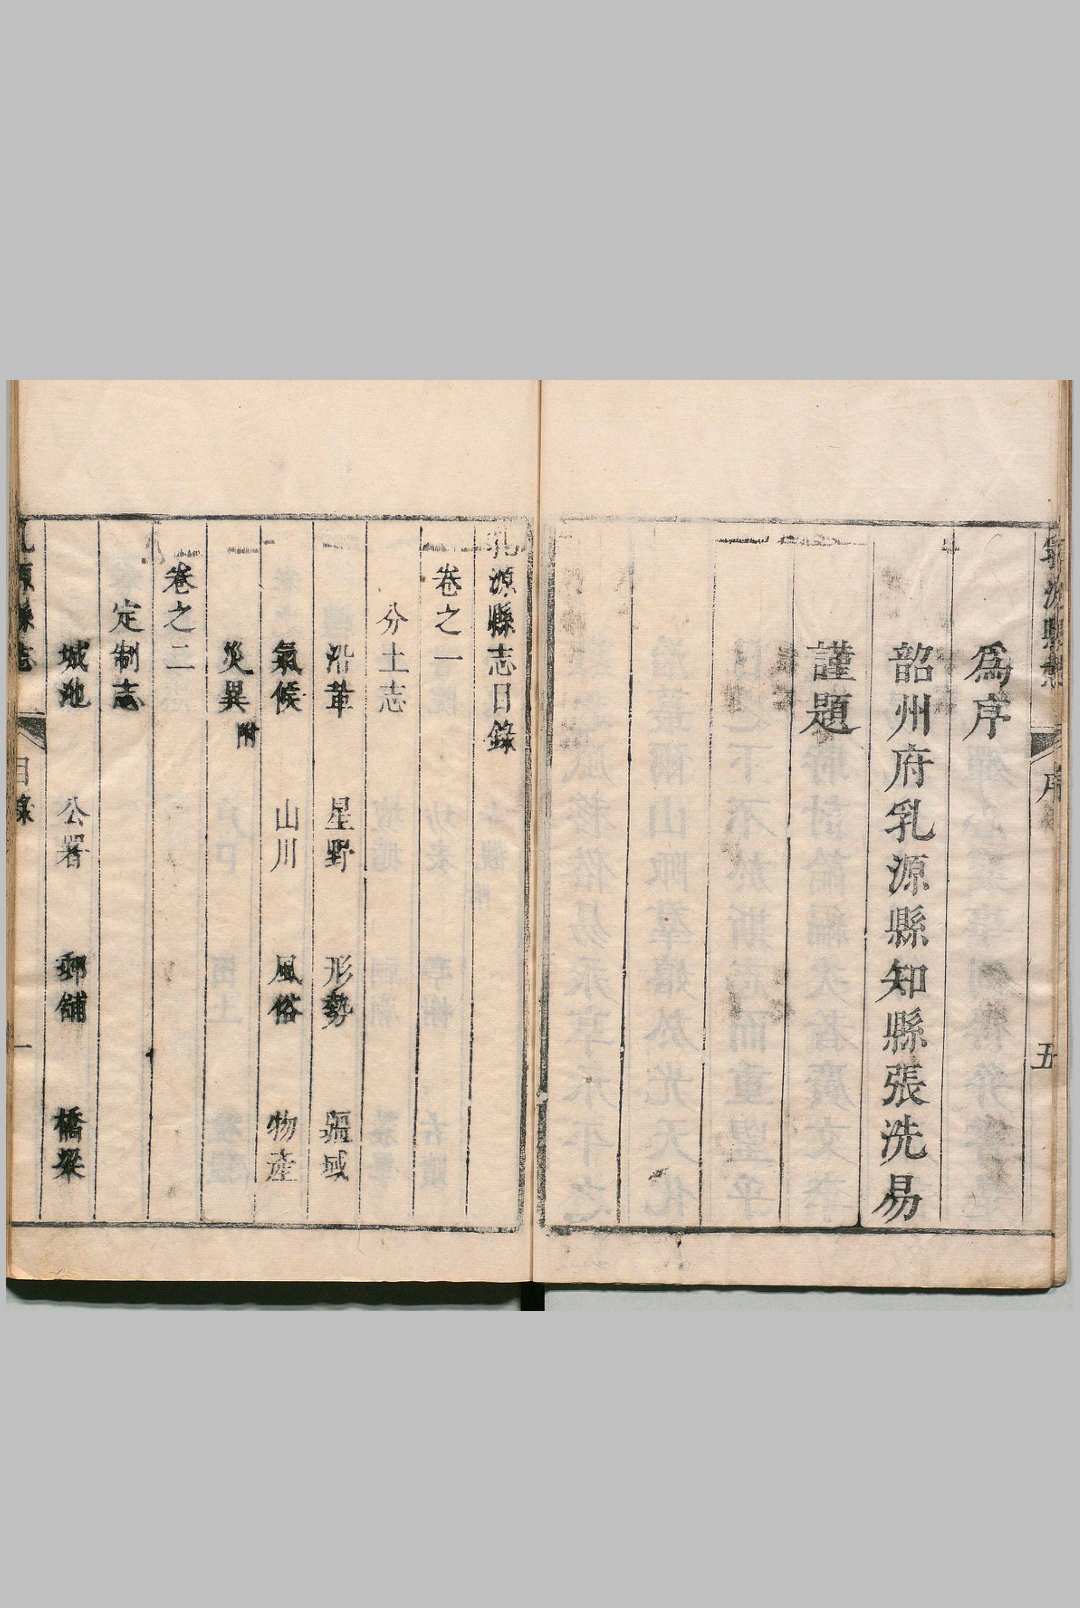 爲序
韶州府乳源縣知縣張洗易
謹題
序
五
乳源縣志目錄
卷之一
分土志
沿革 星野 形勢 疆域
氣候 山川 風俗 物產
災異附
卷之二
定制志
城池 公署 郵舖 橋梁
源縣志
目錄
一